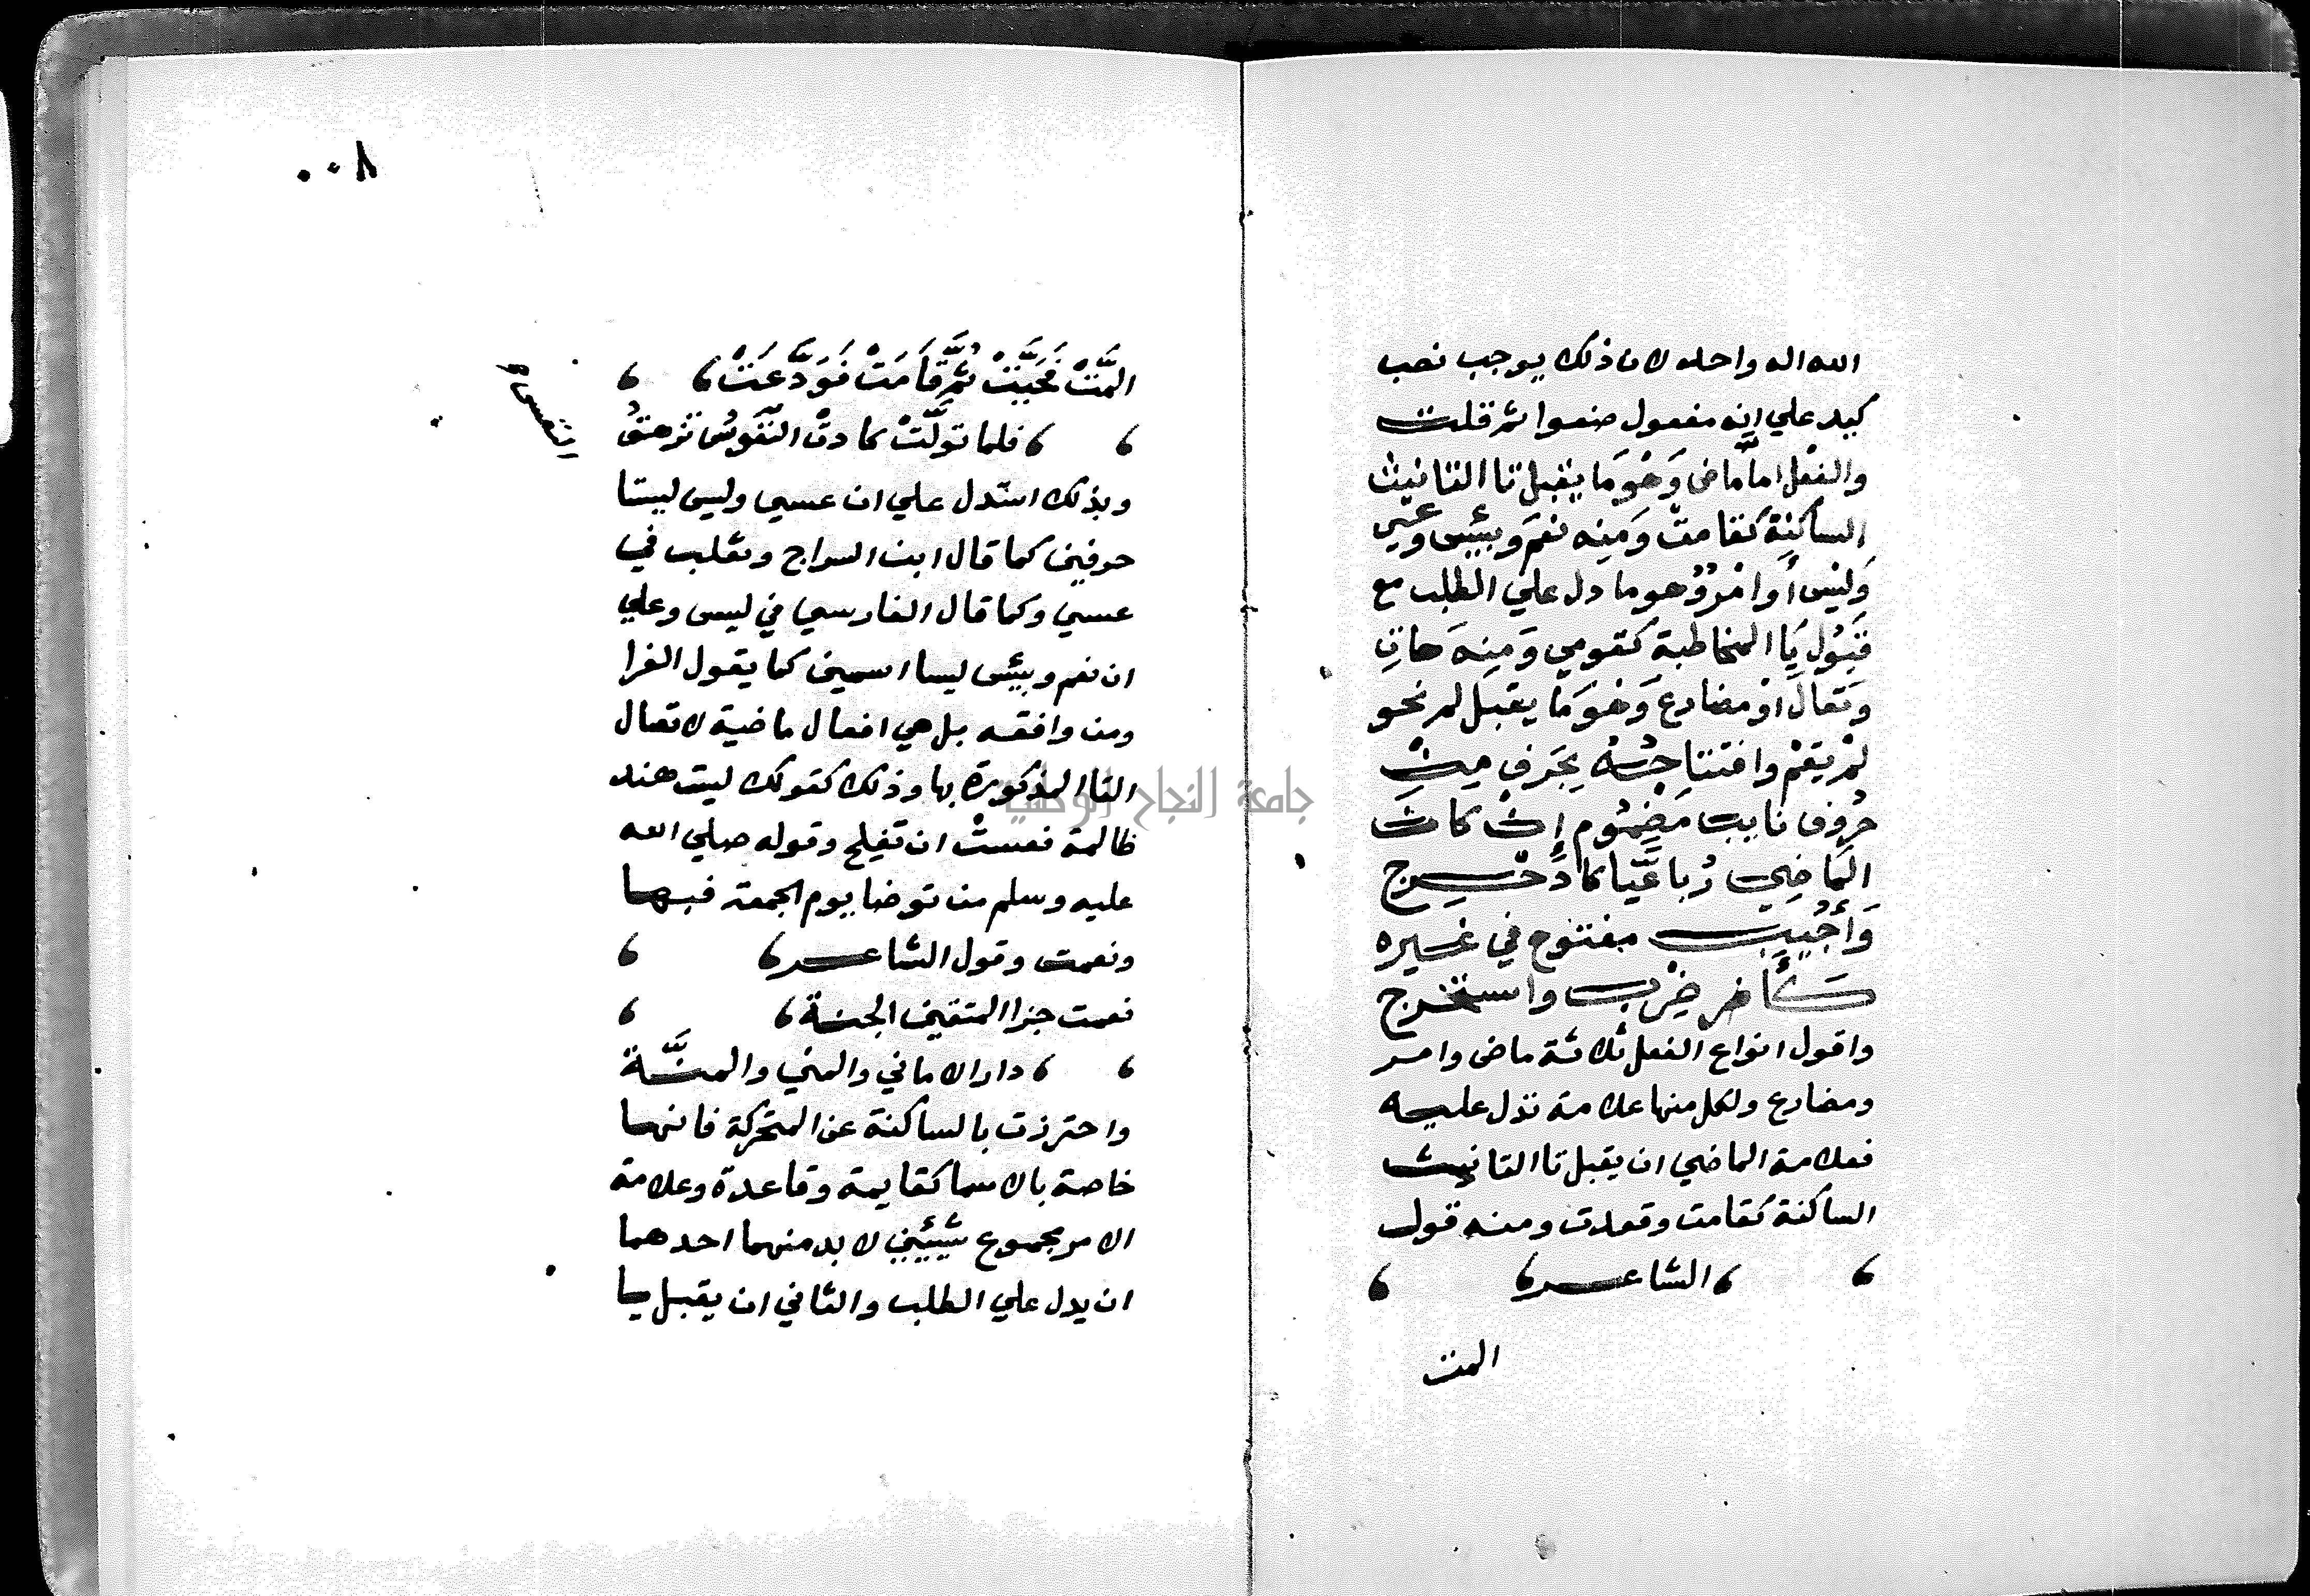 الله اله واحد لان ذلك يوجب نصب
كيد علي انه مفعول صنعوا ثم قلت
والفعْل امّا ماض وَهُوَ مَا يقبل تا التانيث
الساكنِة كَقامتْ وَمنِه نعْمَ وَبئِسَ وعسي
وَليْس أوْ امْرٌ وُهو ما دل علي الطلب مع
قَبُول يَا المخاطبة كَقومي وَمِنِه هَاتِ
وَتعَالَ اوْ مضارع وَهْوَ مَا يقبل لم نحو
لمْ يقمْ وافتتاحُهُ بِحَرفٍ مِنْ
حُرُوف نايت مَضمُوم إنْ كانَ
المَاضِي رُبَاعَيّا كادَحْرِج
وَأُجِيبُ مفتوح في غيره
كَأضرِب واستخرج
واقول انواع الفعل ثلاثة ماض وامر
ومضارع ولكل منها علامة تدل عليه
فعلامة الماضي ان يقبل تا التانيث
الساكنة كقامت وقعدت ومنه قول
الشاعر
المت
٠٠٨
المَّتْ فَحَيَّتْ ثمَّ قَامَتْ فَوَدَّعَتْ
فلما تولَّتْ كادتْ النَّفُوسُ تزهقُ
النفس
وبذلك استدل علي ان عسي وليس ليستا
حرفين كما قال ابن السراج وثعلب في
عسي وكما قال الفارسي في ليس وعلي
ان نعم وبئس ليسا اسمين كما يقول الفرا
ومن وافقه بل هي افعال ماضية لاتصال
التا المذكورة بها وذلك كقولك ليت هند
ظالمة فعستْ ان تفلح وقوله صلي الله
عليه وسلم من توضا يوم الجمعة فبها
ونعمت وقول الشاعر
نعمت جزا المتقين الجنة
دار الاماني والمني والمنَّة
واحترزت بالساكنة عن المتحركة فانها
خاصة بالاسما كقايمة وقاعدة وعلامة
الامر مجموع شيئين لابد منهما احدهما
ان يدل علي الطلب والثاني ان يقبل يا
جامعة النجاح الوطنية